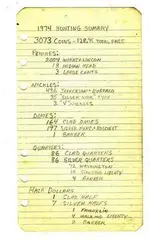 1974 HUNTING SUMMARY
3073 COINS - TOTAL FACE
PENNIES:
2004 WHEAT/LINCOLN
19 INDIAN HEAD
3 LARGE CENTS
NICKLES:
436 JEFFERSON-BUFFALO
35 SILVER WAR TYPE
3 "V" NICKLES
DIMES:
164 CLAD DIMES
197 SILVER
1 BARBER
QUARTERS:
86 CLAD QUARTERS
86 SILVER QUARTERS
72 WASHINGTON
10 STANDING LIBERTY
4 BARBER
HALF DOLLARS
1 CLAD HALF
7 SILVER HALFS
1 FRANKLIN
4 WALKING LIBERTY
2 BARBER